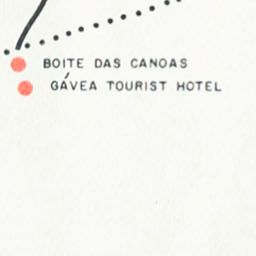 BOITE DAS CANOAS
GÁVEA TOURIST HOTEL